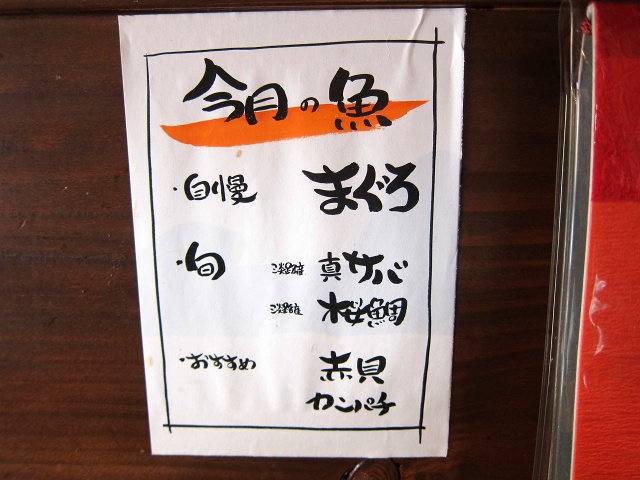 今月の魚
・自慢 まぐろ
・旬 真サバ
桜鯛
・おすすめ 赤貝
カンパチ